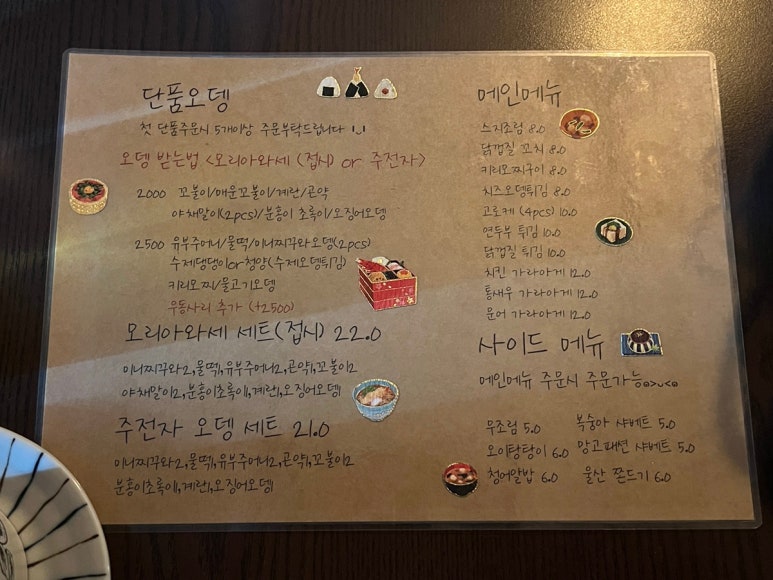 단품오뎅
첫 단품주문시 5개이상 주문부탁드립니다
오뎅 받는법 <모리아와세 (접시) or 주전자>
2000 꼬불이/매운꼬불이/계란/곤약
야채말이(2pcs)/분홍이 초록이/오징어오뎅
2500 유부주머니/물떡/이나찌꾸와오뎅(2pcs)
수제댕댕이or청양(수제오뎅튀김)
키리모찌/물고기오뎅
우동사리 추가 (+2500)
모리아와세 세트(접시) 22.0
이나찌꾸와2,물떡1,유부주머니2,곤약1,꼬불이2
야채말이2,분홍이초록이1,계란1,오징어오뎅1
주전자 오뎅 세트 21.0
이나찌꾸와2,물떡1,유부주머니2,곤약1,꼬불이2
분홍이초록이1,계란1,오징어오뎅1
메인메뉴
스지조림 8.0
닭껍질 꼬치 8.0
키리모찌구이 8.0
치즈오뎅튀김 8.0
고로케 (4pcs) 10.0
연두부 튀김 10.0
닭껍질 튀김 10.0
치킨 가라아게 12.0
통새우 가라아게 12.0
문어 가라아게 12.0
사이드 메뉴
메인메뉴 주문시 주문가능
무조림 5.0 복숭아 샤베트 5.0
오이탕탕이 6.0 망고패션 샤베트 5.0
청어알밥 6.0 울산 쫀드기 6.0